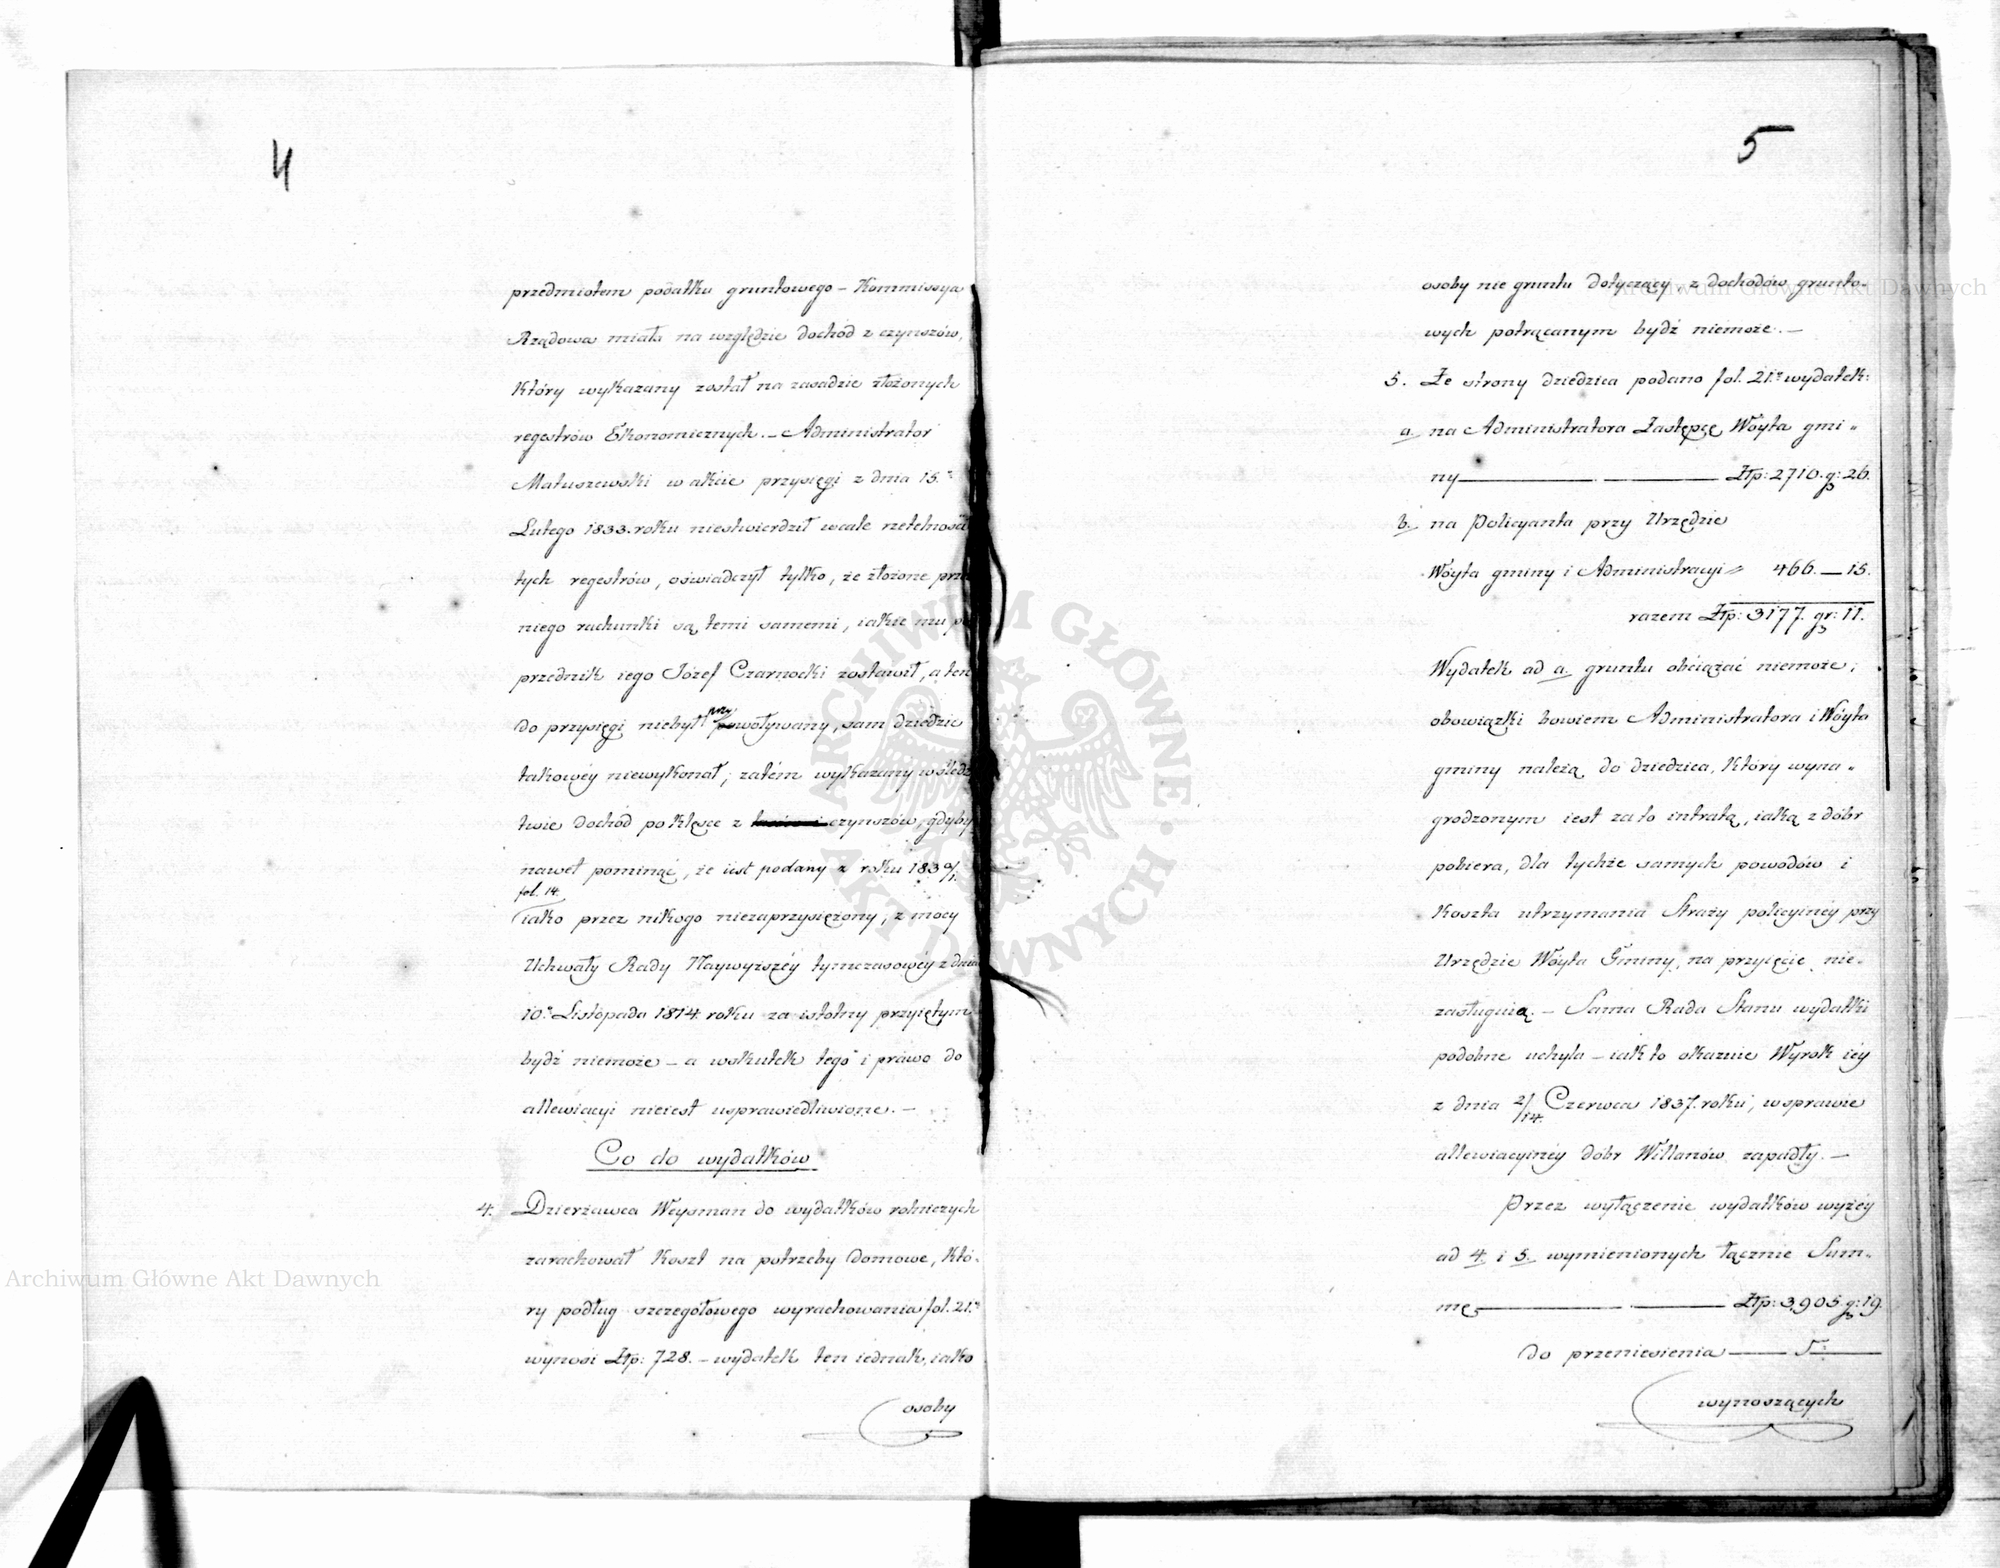 4
przedmiotem podatku gruntowego – Kommissya
Rządowa miała na względzie dochód z czynszów,
który wykazany został na zasadzie złożonych
regestrów Ekonomicznych. – Administrator
Matuszewski w akcie przysięgi z dnia 15.
Lutego 1833. roku niestwierdził wcale rzetelności
tych regestrów, oświadczył tylko, że złożone prze
niego rachunki są temi samemi, iakie mu po
przednik iego Józef Czarnocki zostawił, a ten
do przysięgi niebył przywoływany, sam dziedzic
takowéy niewykonał; zatém wykazany w śledz
twie dochód po klęsce z czynszów, gdyby
nawet pominąć, że iest podany z roku 1830/1.
fol. 14.
iako przez nikogo niezaprzysiężony, z mocy
Uchwały Rady Naywyższéy tymczasowéy z dnia
10. Listopada 1814. roku za istotny przyiętym
bydź niemoże – a wskutek tego i prawo do
allewiacyi nieiest usprawiedliwione. –
Co do wydatków
4. Dzierżawca Weysman do wydatków rolniczych
zarachował koszt na potrzeby domowe, któ-
ry podług szczegółowego wyrachowania fol. 21.
wynosi Złp: 728. – wydatek ten iednak, iako
osoby
5
osoby nie gruntu dotyczący, z dochodów grunto-
wych potrącanym bydź niemoże. –
5. Ze strony dziedzica podano fol. 21. wydatek:
a. na Administratora Zastępcę Wóyta gmi„
ny — Złp: 2710. g: 26.
b. na Policyanta przy Urzędzie
Wóyta gminy i Administracyi „ 466. – 15.
razem Złp: 3177. gr: 11.
Wydatek ad a. gruntu obciązać niemoże;
obowiązki bowiem Administratora i Wóyta
gminy należą do dziedzica, który wyna„
grodzonym iest za to intratą, iaką z dóbr
pobiera, dla tychże samych powodów i
koszta utrzymania Straży policyinéy przy
Urzędzie Wóyta Gminy, na przyięcie nie-
zasługuią. – Sama Rada Stanu wydatki
podobne uchyla – iak to okazuie Wyrok iéy
z dnia 2/14. Czerwca 1837. roku, w sprawie
allewiacyinéy dóbr Willanów zapadły. –
Przez wyłączenie wydatków wyżéy
ad 4. i 5. wymienionych łącznie Sum„
mę — Złp: 3,905 g: 19.
do przeniesienia — 5 —
wynoszących
Archiwum Główne Akt Dawnych
Archiwum Główne Akt Dawnych
ARCHIWUM GŁÓWNE AKT DAWNYCH